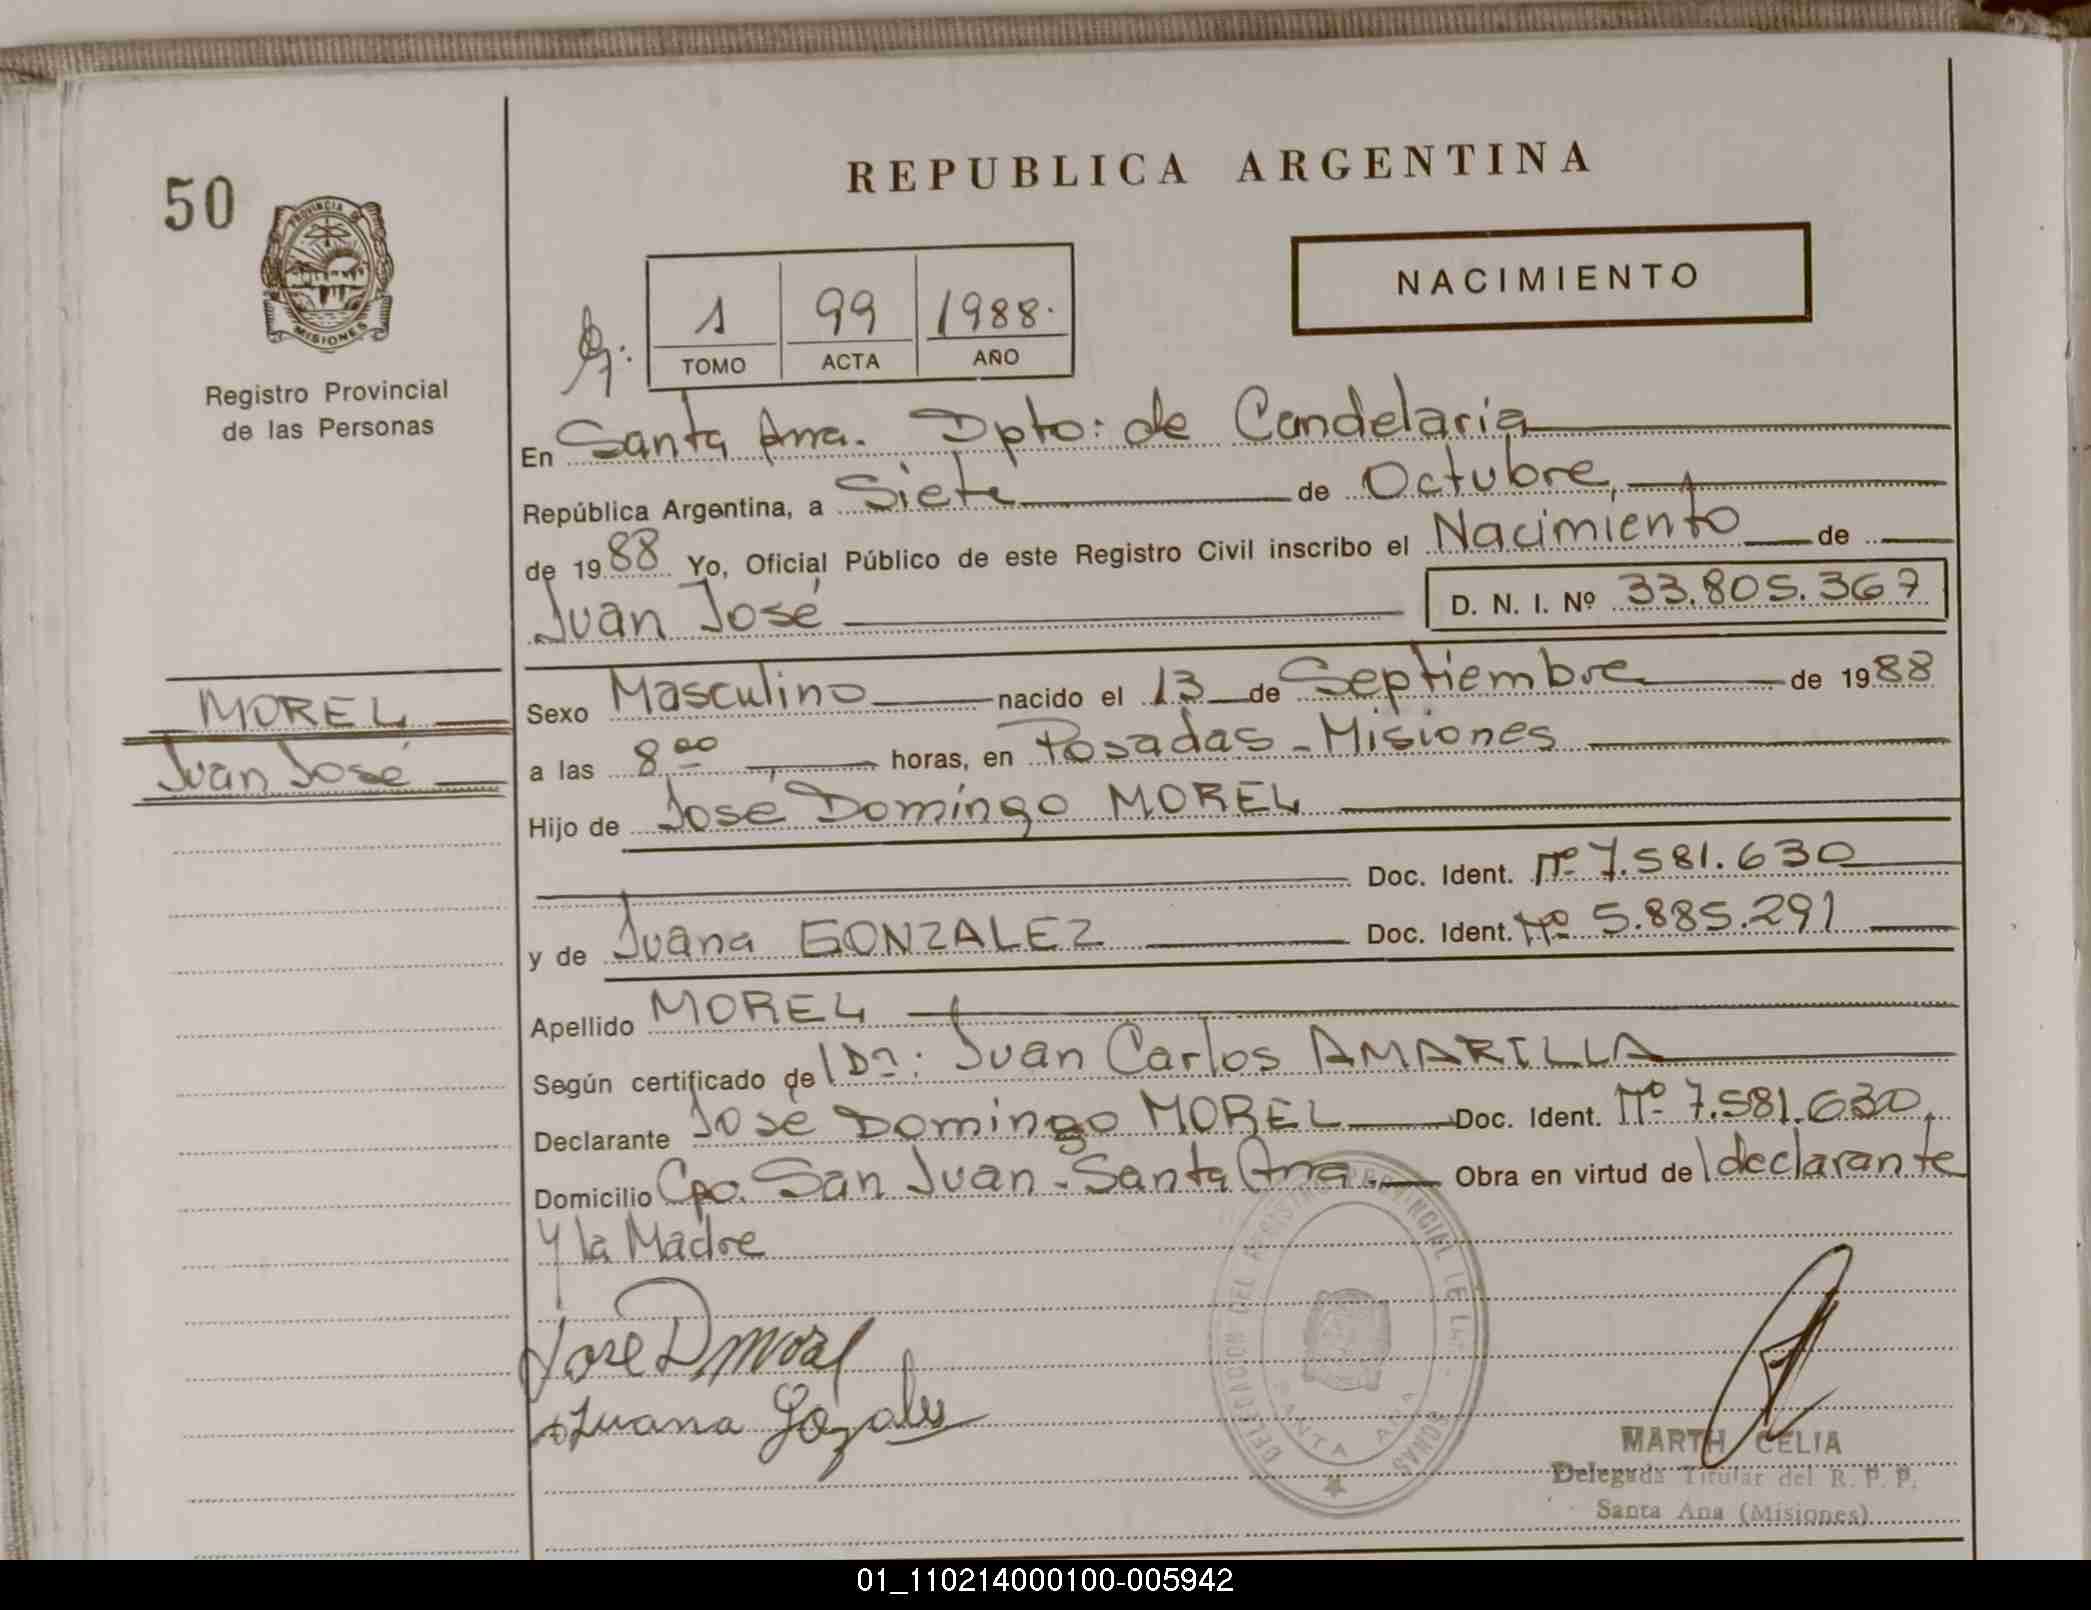 50
PROVINCIA DE
MISIONES
Registro Provincial
de las Personas
MOREL
Juan José
REPUBLICA ARGENTINA
NACIMIENTO
1 99 1988.
TOMO ACTA AÑO
En Santa Ana. Dpto: de Candelaria
República Argentina, a Siete de Octubre,
de 1988 Yo, Oficial Público de este Registro Civil inscribo el Nacimiento de
Juan José D. N. I. Nº 33.805.367
Sexo Masculino nacido el 13 de Septiembre de 1988
a las 8 00 horas, en Posadas - Misiones
Hijo de José Domingo MOREL
Doc. Ident. Nº 7.581.630
y de Juana GONZALEZ Doc. Ident. Nº 5.885.291
Apellido MOREL
Según certificado de l Dr: Juan Carlos AMARILLA
Declarante José Domingo MOREL Doc. Ident. Nº 7.581.630,
Domicilio Cpo. San Juan - Santa Ana. Obra en virtud de l declarante
y la Madre
José D Morel
Juana Gozales
DELEGACION DEL REGISTRO PROVINCIAL DE LAS PERSONAS
SANTA ANA
MARTH CELIA
Delegada Titular del R. P. P.
Santa Ana (Misiones)
01_110214000100-005942